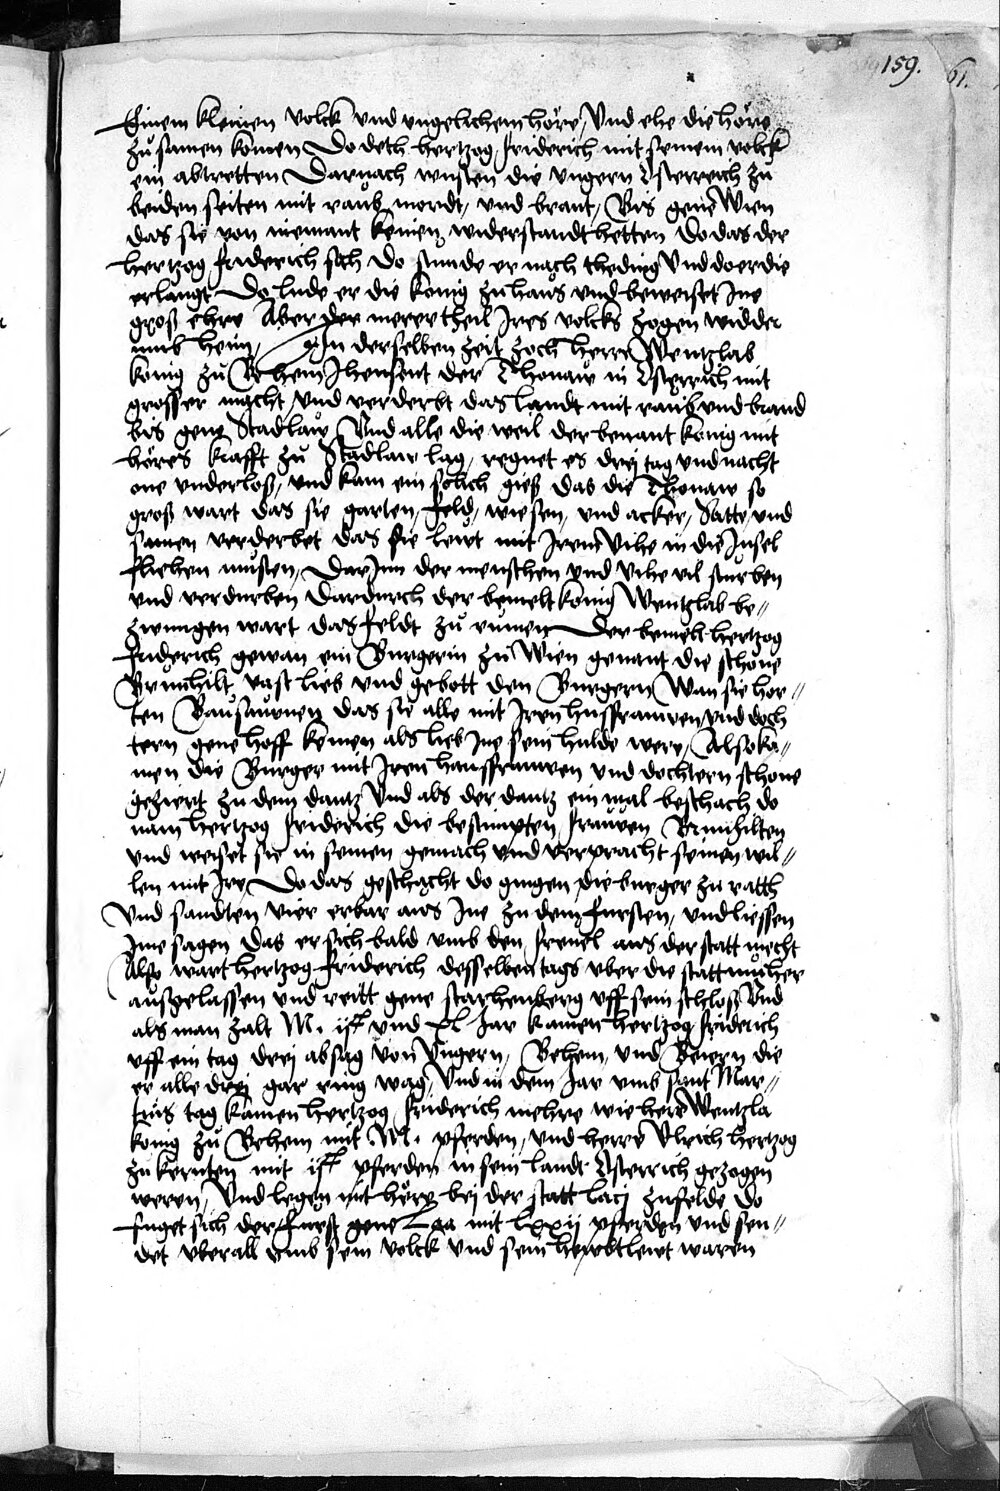 159. 61.
Einem kleinen volck vnd vngelichem höre, Vnd ehe die höre
zů samen komen Do deth hertzog friderich mit seinem volck
ein abtretten Darnach wusten die vngern Osterreich zu
beiden seiten mit raub mordt, vnd brant, Bis gene Wien
das sie von niemant keinen widerstandt hetten Do das der
hertzog friderich sah Do stunde er nach theding Vnd do er die
erlangt Do lude er die konig zu haus vnd beweiset Ine
groß ehre Aber der merer theil Ires volcks zogen widder
umb heim, In derselben zeit zoch herre Wentzlab
konig zů Behem Ihensent der Thonaw in Osterrich mit
grosser macht vnd verderbt das landt mit raub vnd brand
bis gene Stadlaw Vnd alle die weil der benant konig mit
höres krafft zů Stadlaw lag, regnet es drej tag vnd nacht
one vnderloß, vnd kam ein solich gieß das die Thonaw so
groß wart das sie garten, feld, wiesen, vnd acker, Satte, vnd
samen verderbet das die lewt mit Irem Vihe in die Insel
fliehen musten, Dar Inn der menschen vnd vihe vil sturben
vnd verdurben Dardurch der bemelt konig Wentzlab be//
zwungen wart das feldt zů rumen Der bemelt hertzog
friderich gewan ein Burgerin zů Wien genant die schöne
Brunhilt vast lieb vnd gebott den Burgern Wan sie hor//
ten Bausaunen das sie alle mit Iren husfrawen vnd doch
tern gene hoff kemen als lieb Ine sein hulde were, Also ka//
men die Burger mit Iren hausfrauwen vnd dochtern schone
geziert zu dem dantz Vnd als der dantz ein mal beschach do
nam hertzog friderich die bestimpten frauwen Brunhilten
vnd weiset sie in seinen gemach vnd verpracht seinen wil//
len mit Ire, Do das geschacht do gingen die burger zu rath
Vnd sandten vier erbar aus Ine zu dem fursten, vnd liessen
Ime sagen das er sich bald vmb den freuel aus der statt mecht
Also wart hertzog friderich desselben tags vber die stattmuher
außgelassen vnd reitt gene starhenberg vff sein schloß Vnd
als man zalt M. ijc vnd xl Jar kamen hertzog friderich
vff ein tag drej absag von Vngern, Behem, vnd Beiern die
er alle drej gar ring wag, Vnd in dem Jar vmb sant Mar//
tins tag kamen hertzog friderich mehre wie herr Wentzla
konig zů Behem mit M. pferden, vnd herre Vlrich hertzog
zu kernten mit ijc pferden in sein landt Osterrich gezogen
weren, Vnd legen mit höre bej der statt larj zufelde do
fuget sich der furst gene Laa mit lxxij pferden vnd sen//
det vberall vmb sein volck vnd sein hewbtlewt waren